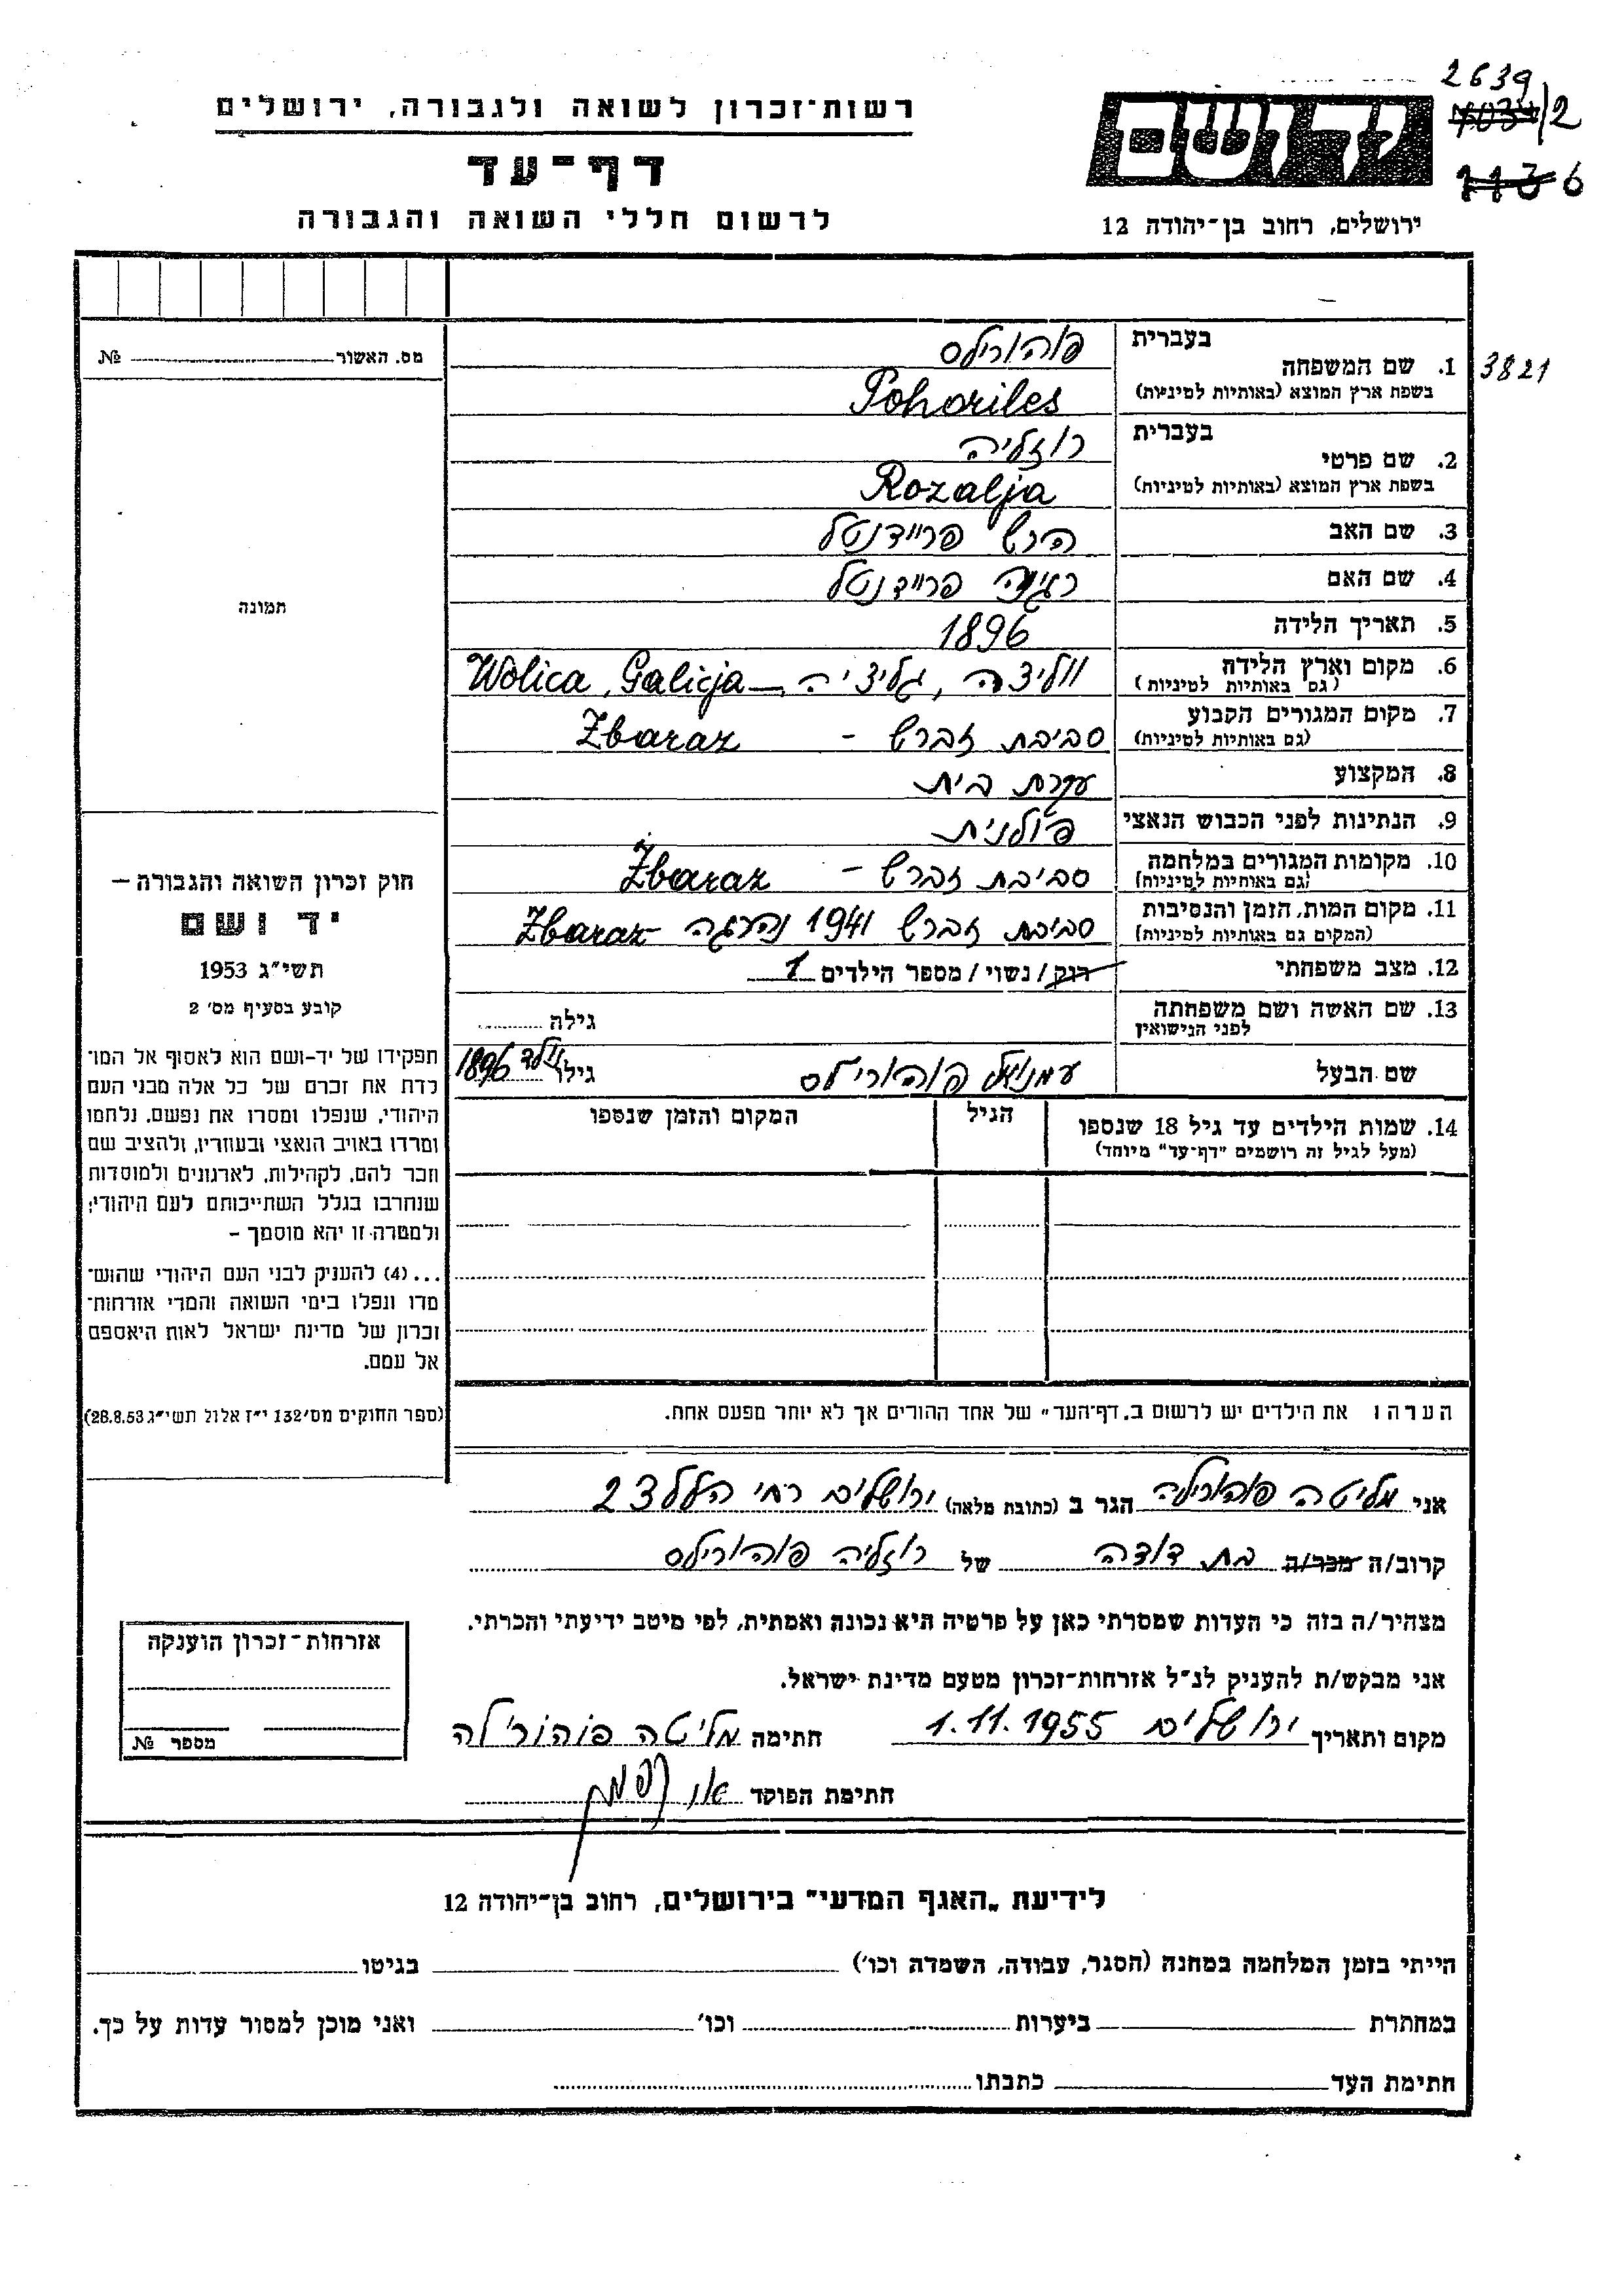 2639
רשות־זכרון לשואה ולגבורה, ירושלים
ידושם
7034/2
דף־עד
1136
לרשום חללי השואה והגבורה
ירושלים, רחוב בן־יהודה 12
בעברית פוהורילס
1. שם המשפחה 3821
בשפת ארץ המוצא (באותיות לטיניות) Pohoriles
בעברית רוזליה
2. שם פרטי
בשפת ארץ המוצא (באותיות לטיניות) Rozalja
3. שם האב הרש פריידנטל
4. שם האם רגינה פריידנטל
5. תאריך הלידה 1896
6. מקום וארץ הלידה ווליצה, גליציה – Wolica, Galicja
(גם באותיות לטיניות)
7. מקום המגורים הקבוע סביבת זברש - Zbaraz
(גם באותיות לטיניות)
8. המקצוע עקרת בית
9. הנתינות לפני הכבוש הנאצי פולנית
10. מקומות המגורים במלחמה סביבת זברש – Żbaraz
(גם באותיות לטיניות)
11. מקום המות, הזמן והנסיבות סביבת זברש 1941 נהרגה Zbaraz
(המקום גם באותיות לטיניות)
12. מצב משפחתי רוק/נשוי/מספר הילדים 1
13. שם האשה ושם משפחתה גילה
לפני הנישואין
שם הבעל עמנואל פוהורילס גילו נולד 1896
14. שמות הילדים עד גיל 18 שנספו הגיל המקום והזמן שנספו
(מעל לגיל זה רושמים "דף־עד" מיוחד)
הערהו את הילדים יש לרשום ב„דף־העד" של אחד ההורים אך לא יותר מפעם אחת.
מס. האשור №
תמונה
חוק זכרון השואה והגבורה –
יד ושם
תשי"ג 1953
קובע בסעיף מס' 2
תפקידו של יד-ושם הוא לאסוף אל המו־
לדת את זכרם של כל אלה מבני העם
היהודי, שנפלו ומסרו את נפשם, נלחמו
ומרדו באויב הנאצי ובעוזריו, ולהציב שם
וזכר להם, לקהילות, לארגונים ולמוסדות
שנחרבו בגלל השתייכותם לעם היהודי;
ולמטרה זו יהא מוסמך –
...(4) להעניק לבני העם היהודי שהוש־
מדו ונפלו בימי השואה והמרי אזרחות־
זכרון של מדינת ישראל לאות היאספם
אל עמם.
(ספר החוקים מס' 132 י"ז אלול תשי"ג 28.8.53)
אני מליטה פוהורילה הגר ב (כתובת מלאה) ירושלים רח'  23
קרוב/ה מכר/ה בת דודה של רוזליה פוהורילס
מצהיר/ה בזה כי העדות שמסרתי כאן על פרטיה היא נכונה ואמתית, לפי מיטב ידיעתי והכרתי.
אני מבקש/ת להעניק לנ"ל אזרחות־זכרון מטעם מדינת ישראל.
מקום ותאריך ירושלים 1.11.1955 חתימה מליטה פוהורילה
חתימת הפוקד
אזרחות־זכרון הוענקה
מספר №
לידיעת „האגף המדעי" בירושלים, רחוב בן־יהודה 12
הייתי בזמן המלחמה במחנה (הסגר, עבודה, השמדה וכו') בגיטו
במחתרת ביערות וכו' ואני מוכן למסור עדות על כך.
חתימת העד כתבתו